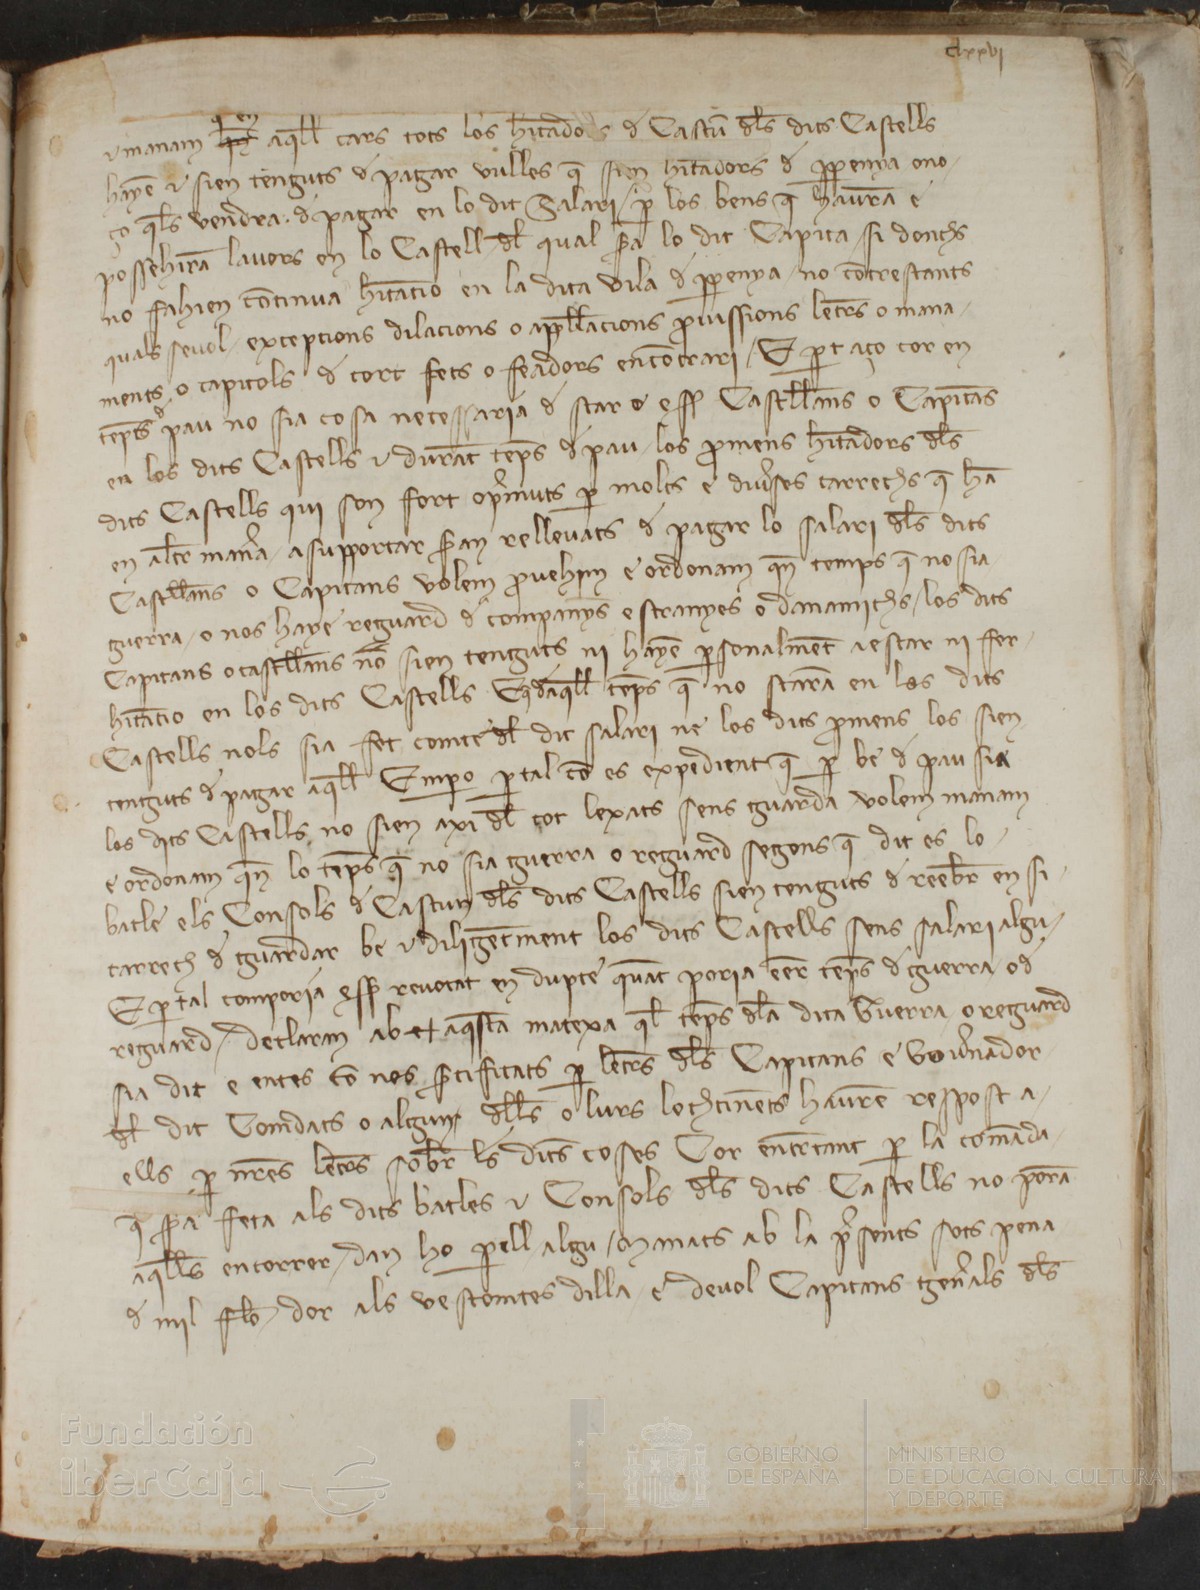 clxxvi
e manam q̄ en aq̄ll cars tots los hītadors d̄ Cascū dl̄s dits Castells
hayē e sien tenguts d̄ pagar vulles q̄ sien hītadors d̄ ꝑpenya o no
ço q̄ls vendra d̄ pagar en lo dit Salari ꝑ los bens q̄ hauran̄ e
possehiran̄ lauors en lo Castell dl̄ qual sr̄a lo dit Capita si donchs
no fahien cōtinua hītatio en la dita vila d̄ ꝑpenya no cōtrestants
quals seuol excepcions dilacions o apl̄lacions ꝓuissions lēts o mana
ments o capitols d̄ cort fets o feadors encōtrari / E ꝑt aço cor en
temps d̄ pau no sia cosa necessaria d̄ star o esser Castl̄lans o Capitās
en los dits Castells e durāt temps d̄ pau los ꝓmens hītadors dl̄s
dits Castells qui son fort opr̄muts ꝑ molts e diuṡes carrechs q̄ hā
en alt̄r man̄a a supportar sīan relleuats d̄ pagar lo salari dl̄s dits
Castl̄lans o Capitans volem ꝓuehim e ordonam qn̄ temps q̄ no sia
guerra o nos haye reguard d̄ companȳs estranyes o danamichs los dits
Capitans o castl̄lans nō sien tenguts ni hayē ꝑsonalmēt a estar ni fer
hītatio en los dits Castells E q̄ daq̄ll temps q̄ no staran̄ en los dits
Castells nols sia fet comte dl̄ dit salari ne los dits ꝓmens los sien
tenguts d̄ pagar aq̄ll Emꝑo ꝑ tal cō es expedient q̄ ꝑ be d̄ pau sia
los dits Castells no sien axi dl̄ tot lexats sens guarda volem manam
e ordonam qn̄ lo temps q̄ no sia guerra o reguard segons q̄ dit es lo
batle els Consols d̄ Cascun dl̄s dits Castells sien tenguts d̄ reebr̄ en si
carrech d̄ guardar be e diligētment los dits Castells sens salari algu
E ꝑ tal com poria esser reuocat en dupte quāt poria eēr temps d̄ guerra o d̄
reguard / declaram ab aq̄sta matexa ql̄ temps dl̄a dita Guerra o reguard
sia dit e entes cō nos sr̄tificats ꝑ lēts dl̄s Capitans e Gouērnador
dl̄ dit Comdats o algun dl̄ls o lurs lochtinēts haurē respost a
ells ꝑ nr̄es lēts sobr̄ ls̄ dites coses Cor entrtant ꝑ la comāda
q̄ sr̄a feta als dits batles e Consols dl̄s dits Castells no poran̄
aq̄lls encorrer / dan ho ꝑell algu / Manats ab la pr̄sents sots pena
d̄ mil flō dor als vescomtes dilla e deuol Capitans gen̄als dl̄s
Fundación
iberCaja
GOBIERNO
DE ESPAÑA
MINISTERIO
DE EDUCACIÓN, CULTURA
Y DEPORTE